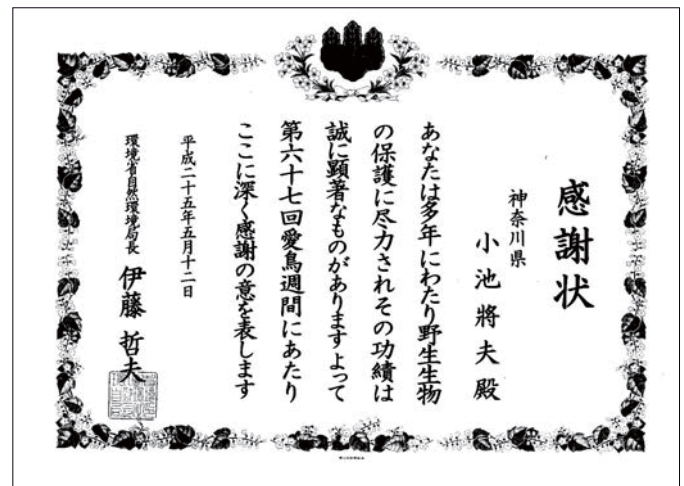 感謝状
神奈川県
小池將夫殿
あなたは多年にわたり野生生物
の保護に尽力されその功績は
誠に顕著なものがありますよって
第六十七回愛鳥週間にあたり
ここに深く感謝の意を表します
平成二十五年五月十二日
環境省自然環境局長 伊藤哲夫